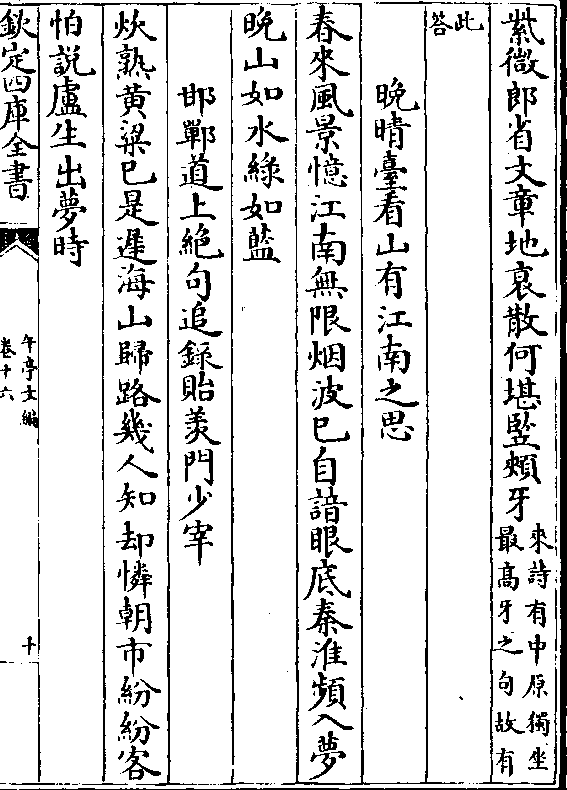 紫微郎省文章地衰散何堪監頰牙来詩有中原獨坐
最高牙之句故有
此
答
晩晴臺看山有江南之思
春來風景憶江南無限烟波已自諳眼底秦淮頻入夢
晩山如水綠如藍
邯鄲道上絶句追錄貽羨門少宰
炊熟黄粱已是遲海山歸路幾人知却憐朝市紛紛客
怕説盧生出夢時
欽定四庫全書
午亭文編
卷十六
十